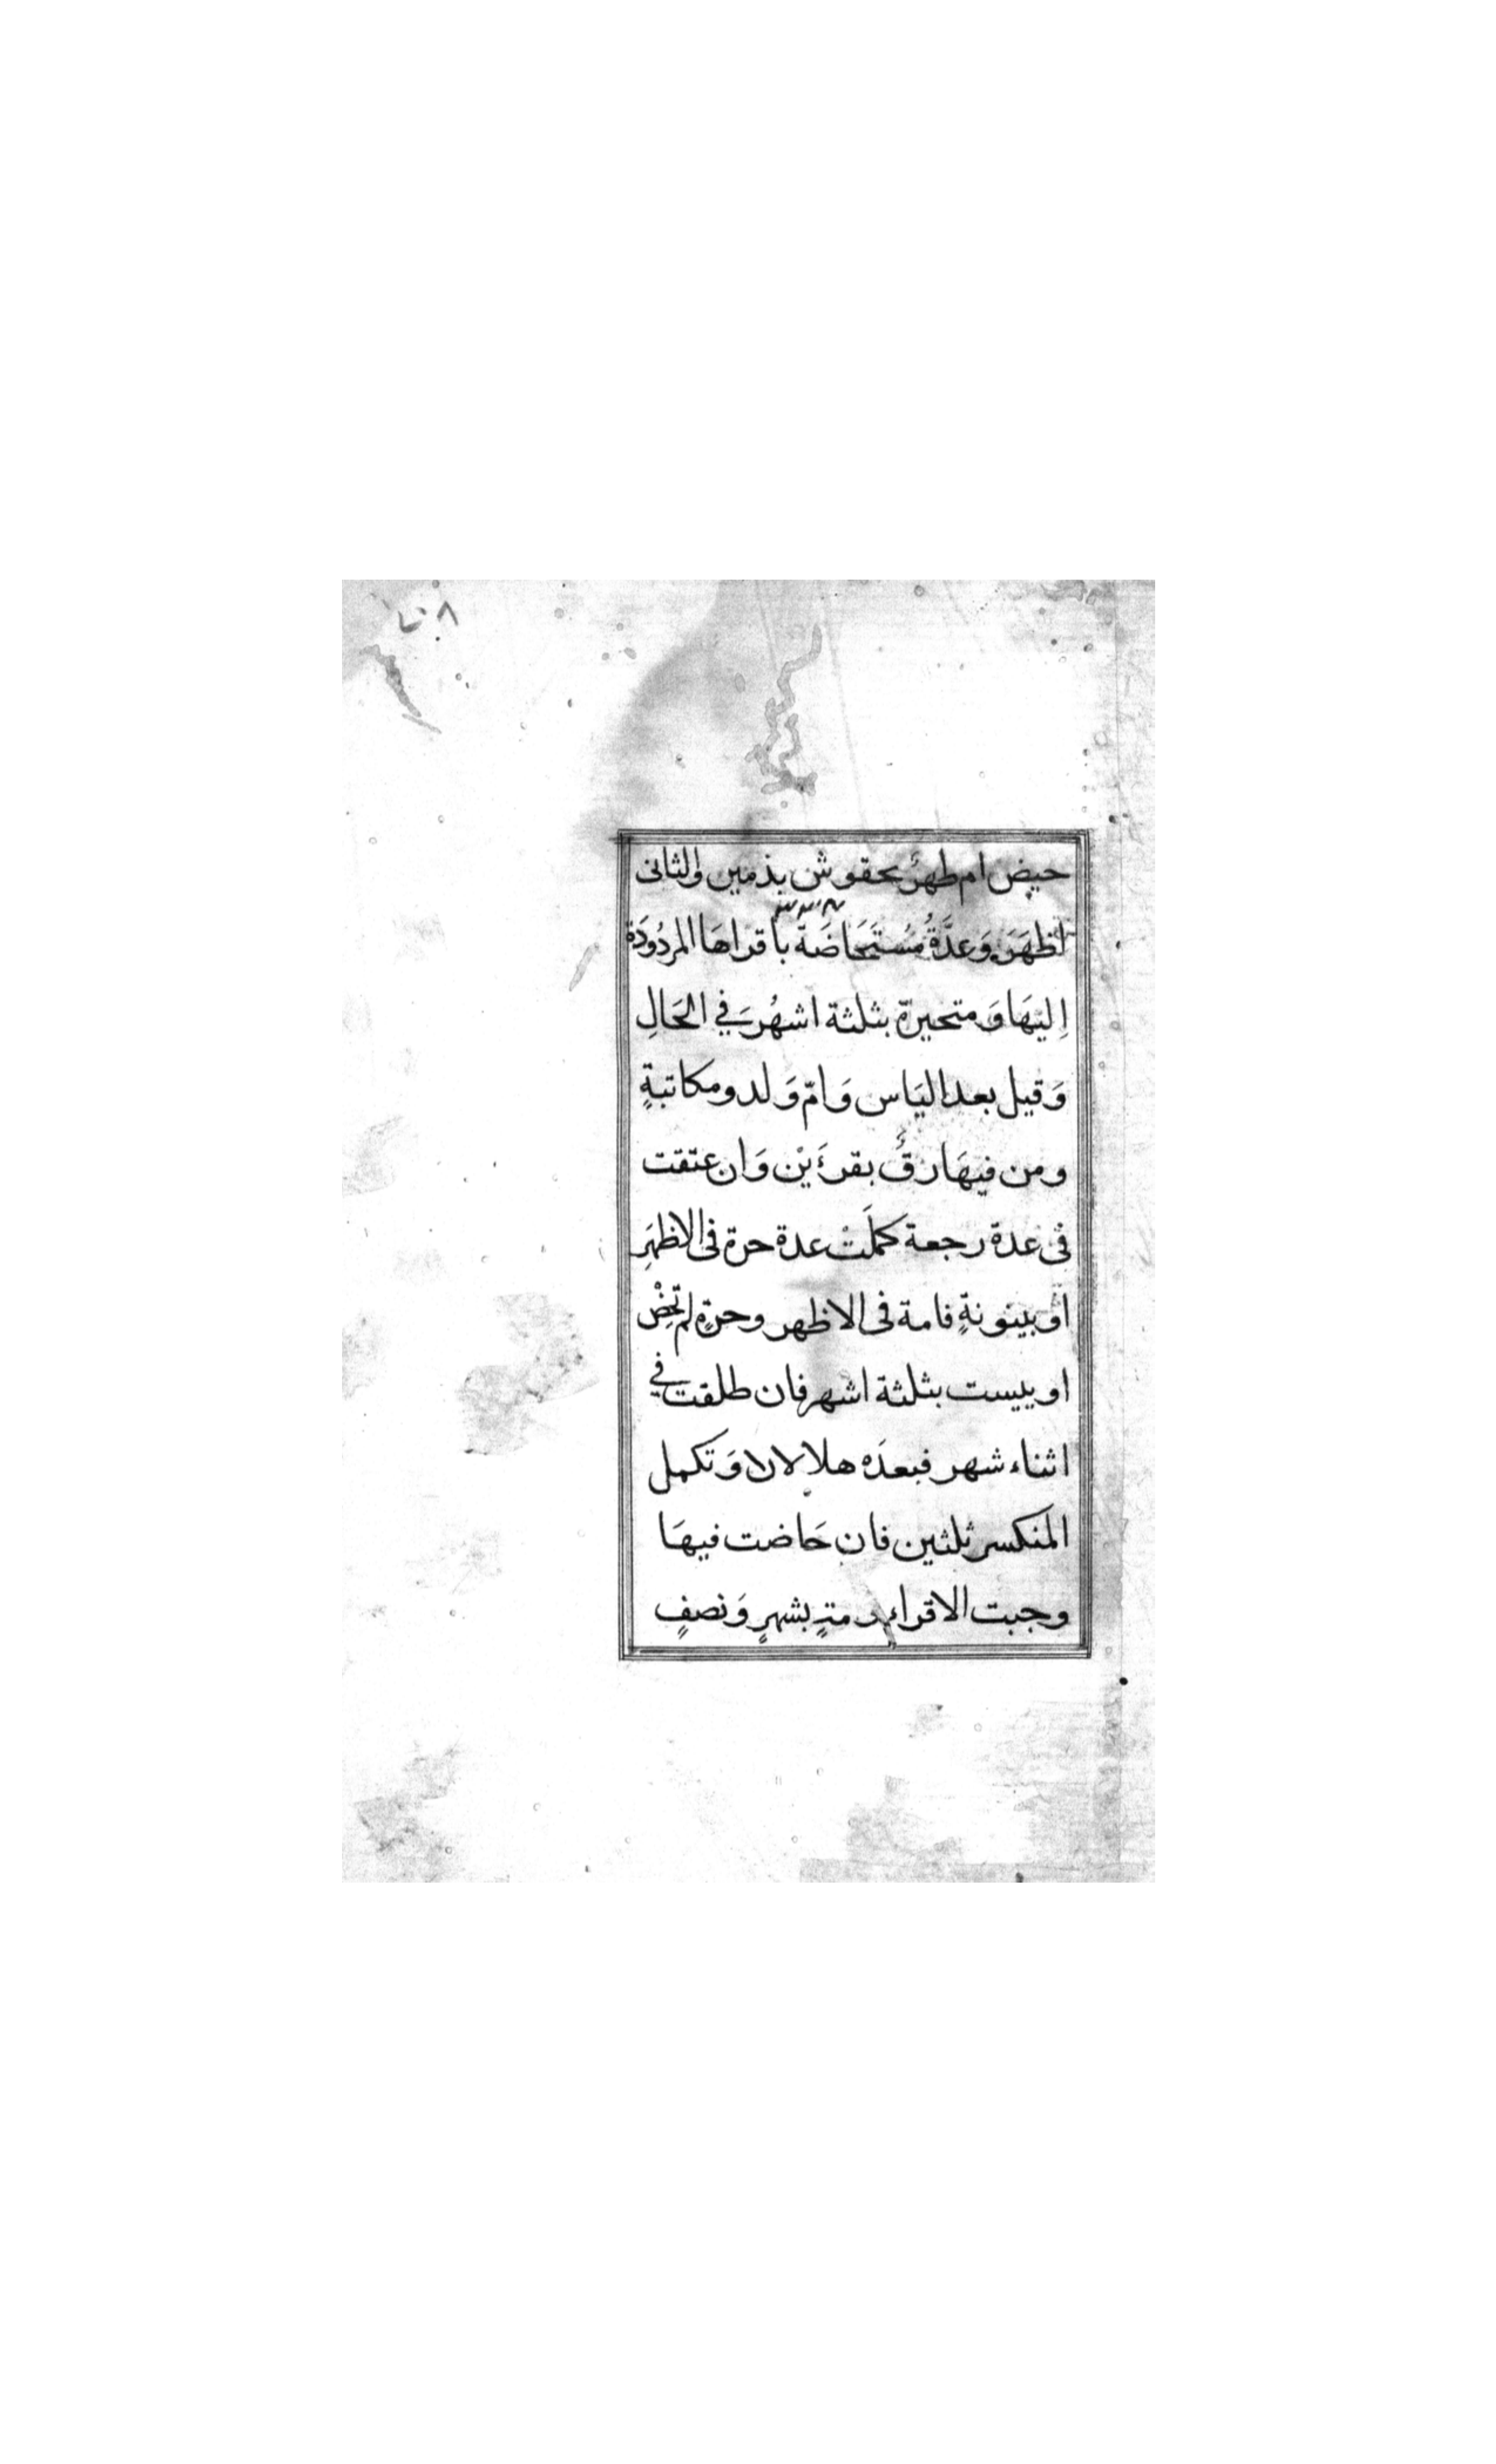 حيض ام طهر محقوش بذمين والثانى
اظهَرَ وَعدَّةُ مُستَحَاضَة باقراهَا المردُودَة
اِليهَا وَ متحيرة بثلثة اشهُرٍ في الحَالِ
وَقيل بعد اليَاس وَامّ وَلد ومكاتبةٍ
ومن فيهَا رقٌ بقرءَيْن وَان عتقت
فى عدة رجعة كملَتْ عدة حرة فى الاظهَرِ
اوْ بينونةٍ فامة فى الاظهر وحرّةٍ لم تحِضْ
او ييست بثلثة اشهر فان طلقت في
اثناء شهر فبعدَه هلالان وَتكمل
المَنكسر ثلثين فان حَاضت فيهَا
وجبت الاقراء متةٍ بشهرٍ وَنصفٍ